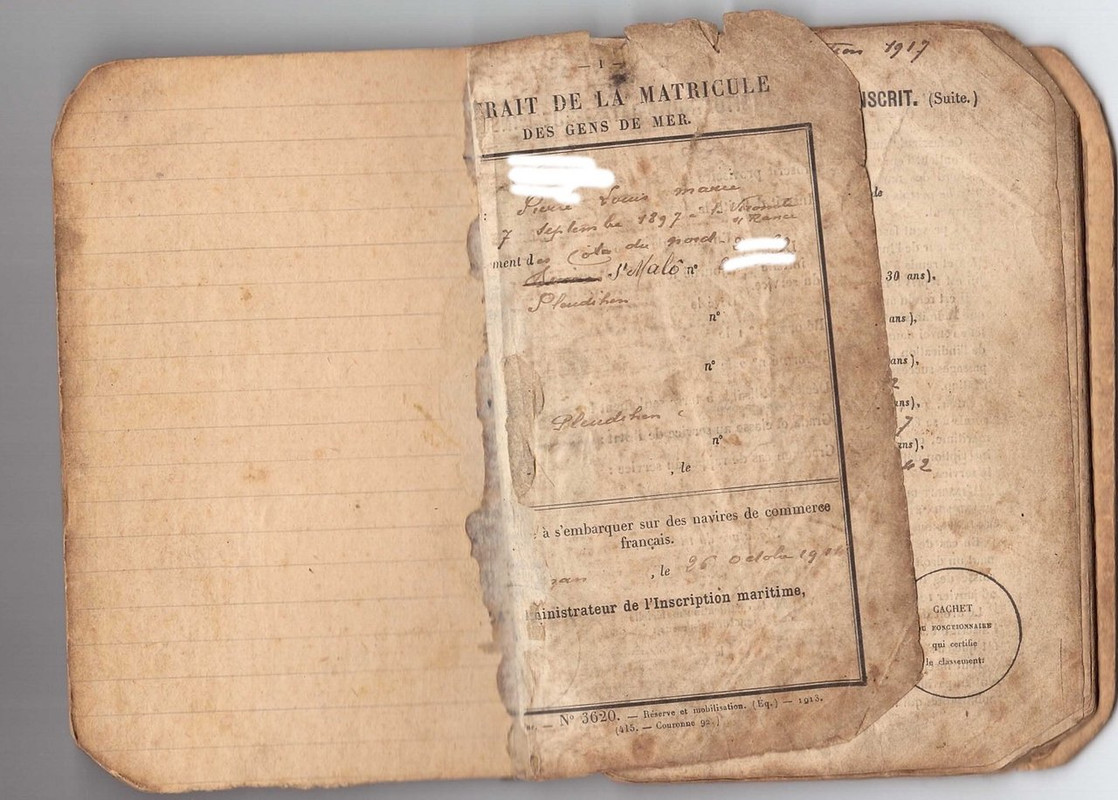 — 1 —
RAIT DE LA MATRICULE
DES GENS DE MER.
Pierre Louis marie
7 septembre 1897 à la Vicomté
s/ Rance
ment des Côtes du nord
St Malo n°
Pleudihen
n°
n°
Pleudihen
n°
, le
à s'embarquer sur des navires de commerce
français.
, le 26 Octobre 191
ministrateur de l'Inscription maritime,
— N° 3620. — Réserve et mobilisation. (Eq.) — 1913.
(415. — Couronne 92.)
1917
NSCRIT. (Suite.)
de
30 ans),
ans),
ans),
2
ans),
7
ans),
42
CACHET
DU FONCTIONNAIRE
qui certifie
le classement